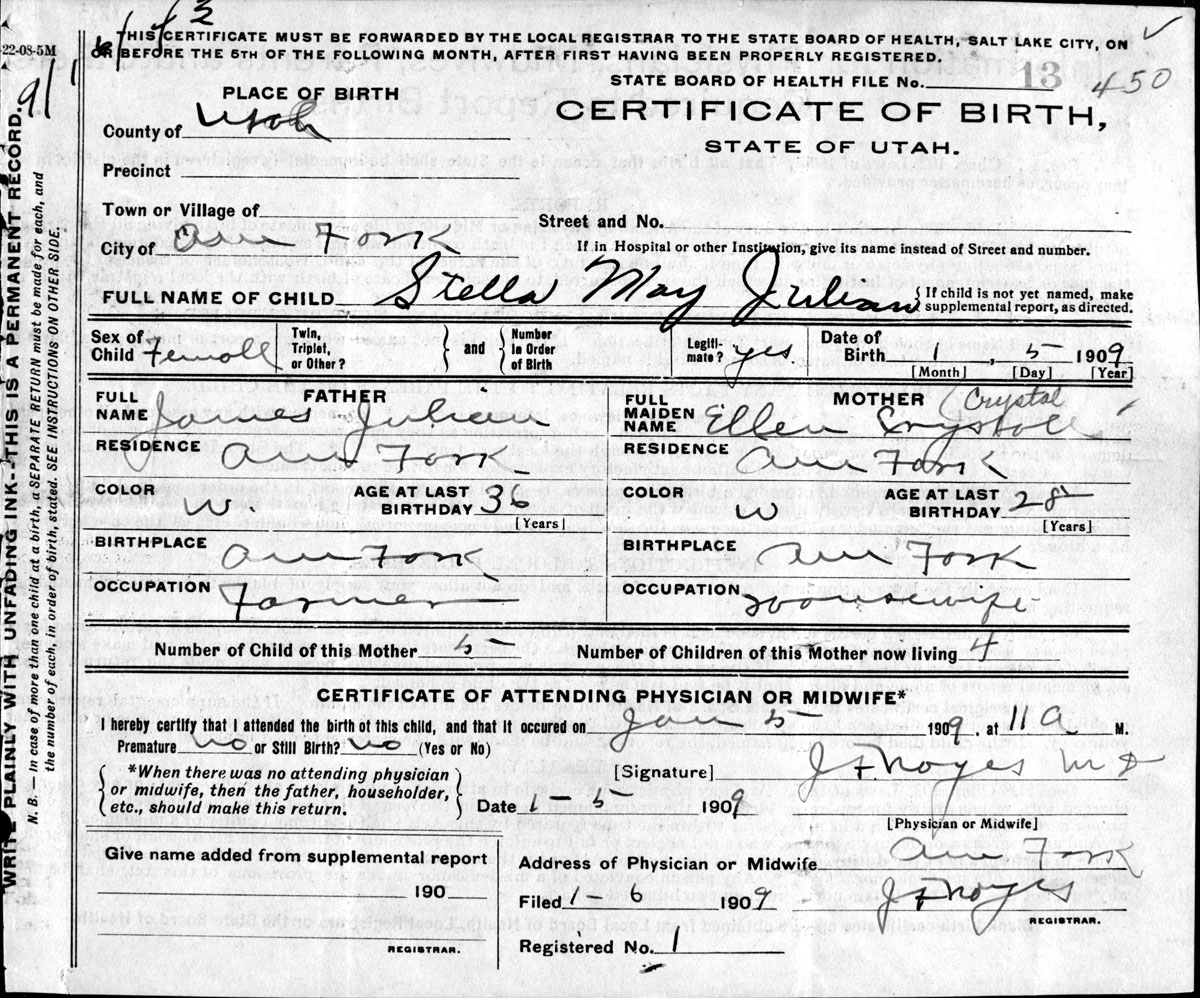 3
22-08-5M
THIS CERTIFICATE MUST BE FORWARDED BY THE LOCAL REGISTRAR TO THE STATE BOARD OF HEALTH, SALT LAKE CITY, ON
OR BEFORE THE 5TH OF THE FOLLOWING MONTH, AFTER FIRST HAVING BEEN PROPERLY REGISTERED.
STATE BOARD OF HEALTH FILE No. 13 450
91
PLACE OF BIRTH
CERTIFICATE OF BIRTH,
County of Utah
STATE OF UTAH.
Precinct
Town or Village of
Street and No.
City of Am Fork
If in Hospital or other Institution, give its name instead of Street and number.
FULL NAME OF CHILD Stella May Julian { If child is not yet named, make
supplemental report, as directed.
Sex of Child Femall Twin, Triplet, or Other? } and { Number In Order of Birth Legiti- mate? yes Date of Birth 1, 5 1909
[Month] [Day] [Year]
FATHER
FULL NAME James Julian
RESIDENCE Am Fork
COLOR W AGE AT LAST BIRTHDAY 36
[Years]
BIRTHPLACE Am Fork
OCCUPATION Farmer
MOTHER (Crystal
FULL MAIDEN NAME Ellen Crystoll
RESIDENCE Am Fork
COLOR W AGE AT LAST BIRTHDAY 28
[Years]
BIRTHPLACE Am Fork
OCCUPATION Housewife
Number of Child of this Mother 5 Number of Children of this Mother now living 4
CERTIFICATE OF ATTENDING PHYSICIAN OR MIDWIFE*
I hereby certify that I attended the birth of this child, and that it occured on Jan 5 1909, at 11 a M.
Premature No or Still Birth? No (Yes or No)
{ *When there was no attending physician
or midwife, then the father, householder,
etc., should make this return. }
[Signature] J F Noyes M D
Date 1-5 1909
[Physician or Midwife]
Give name added from supplemental report
190
REGISTRAR.
Address of Physician or Midwife Am Fork
Filed 1-6 1909 J F Noyes
REGISTRAR.
Registered No. 1
WRITE PLAINLY WITH UNFADING INK--THIS IS A PERMANENT RECORD.
N. B.—In case of more than one child at a birth, a SEPARATE RETURN must be made for each, and
the number of each, in order of birth, stated. SEE INSTRUCTIONS ON OTHER SIDE.